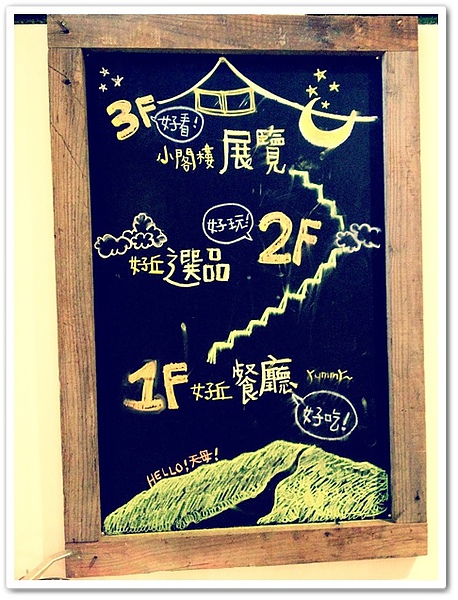 3F
好看!
小閣樓 展覽
好玩!
2F
好丘 選品
1F 好丘 餐廳 Yummy~
好吃!
HELLO!天母!